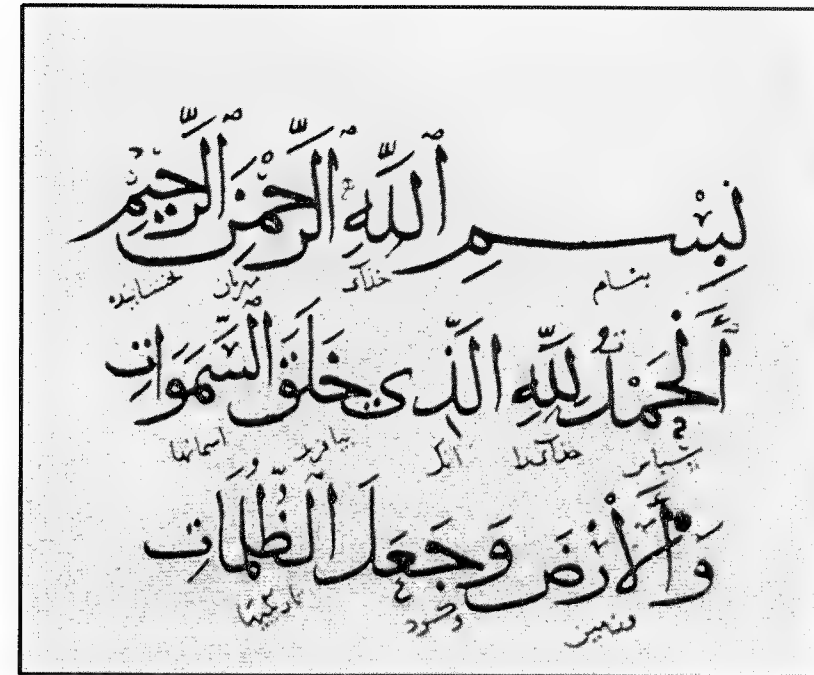 بِسْمِ ٱللَّهِ ٱلرَّحْمٰنِ ٱلرَّحِيمِ
بنام خدای مهربان بخشاینده
أَلْحَمْدُ لِلَّهِ الَّذِي خَلَقَ ٱلسَّمَوَاتِ
سپاس خدایرا آنک بیافرید آسمانها
وَٱلْأَرْضَ وَجَعَلَ ٱلظُّلُمَاتِ
وزمین وکرد تاریکیها